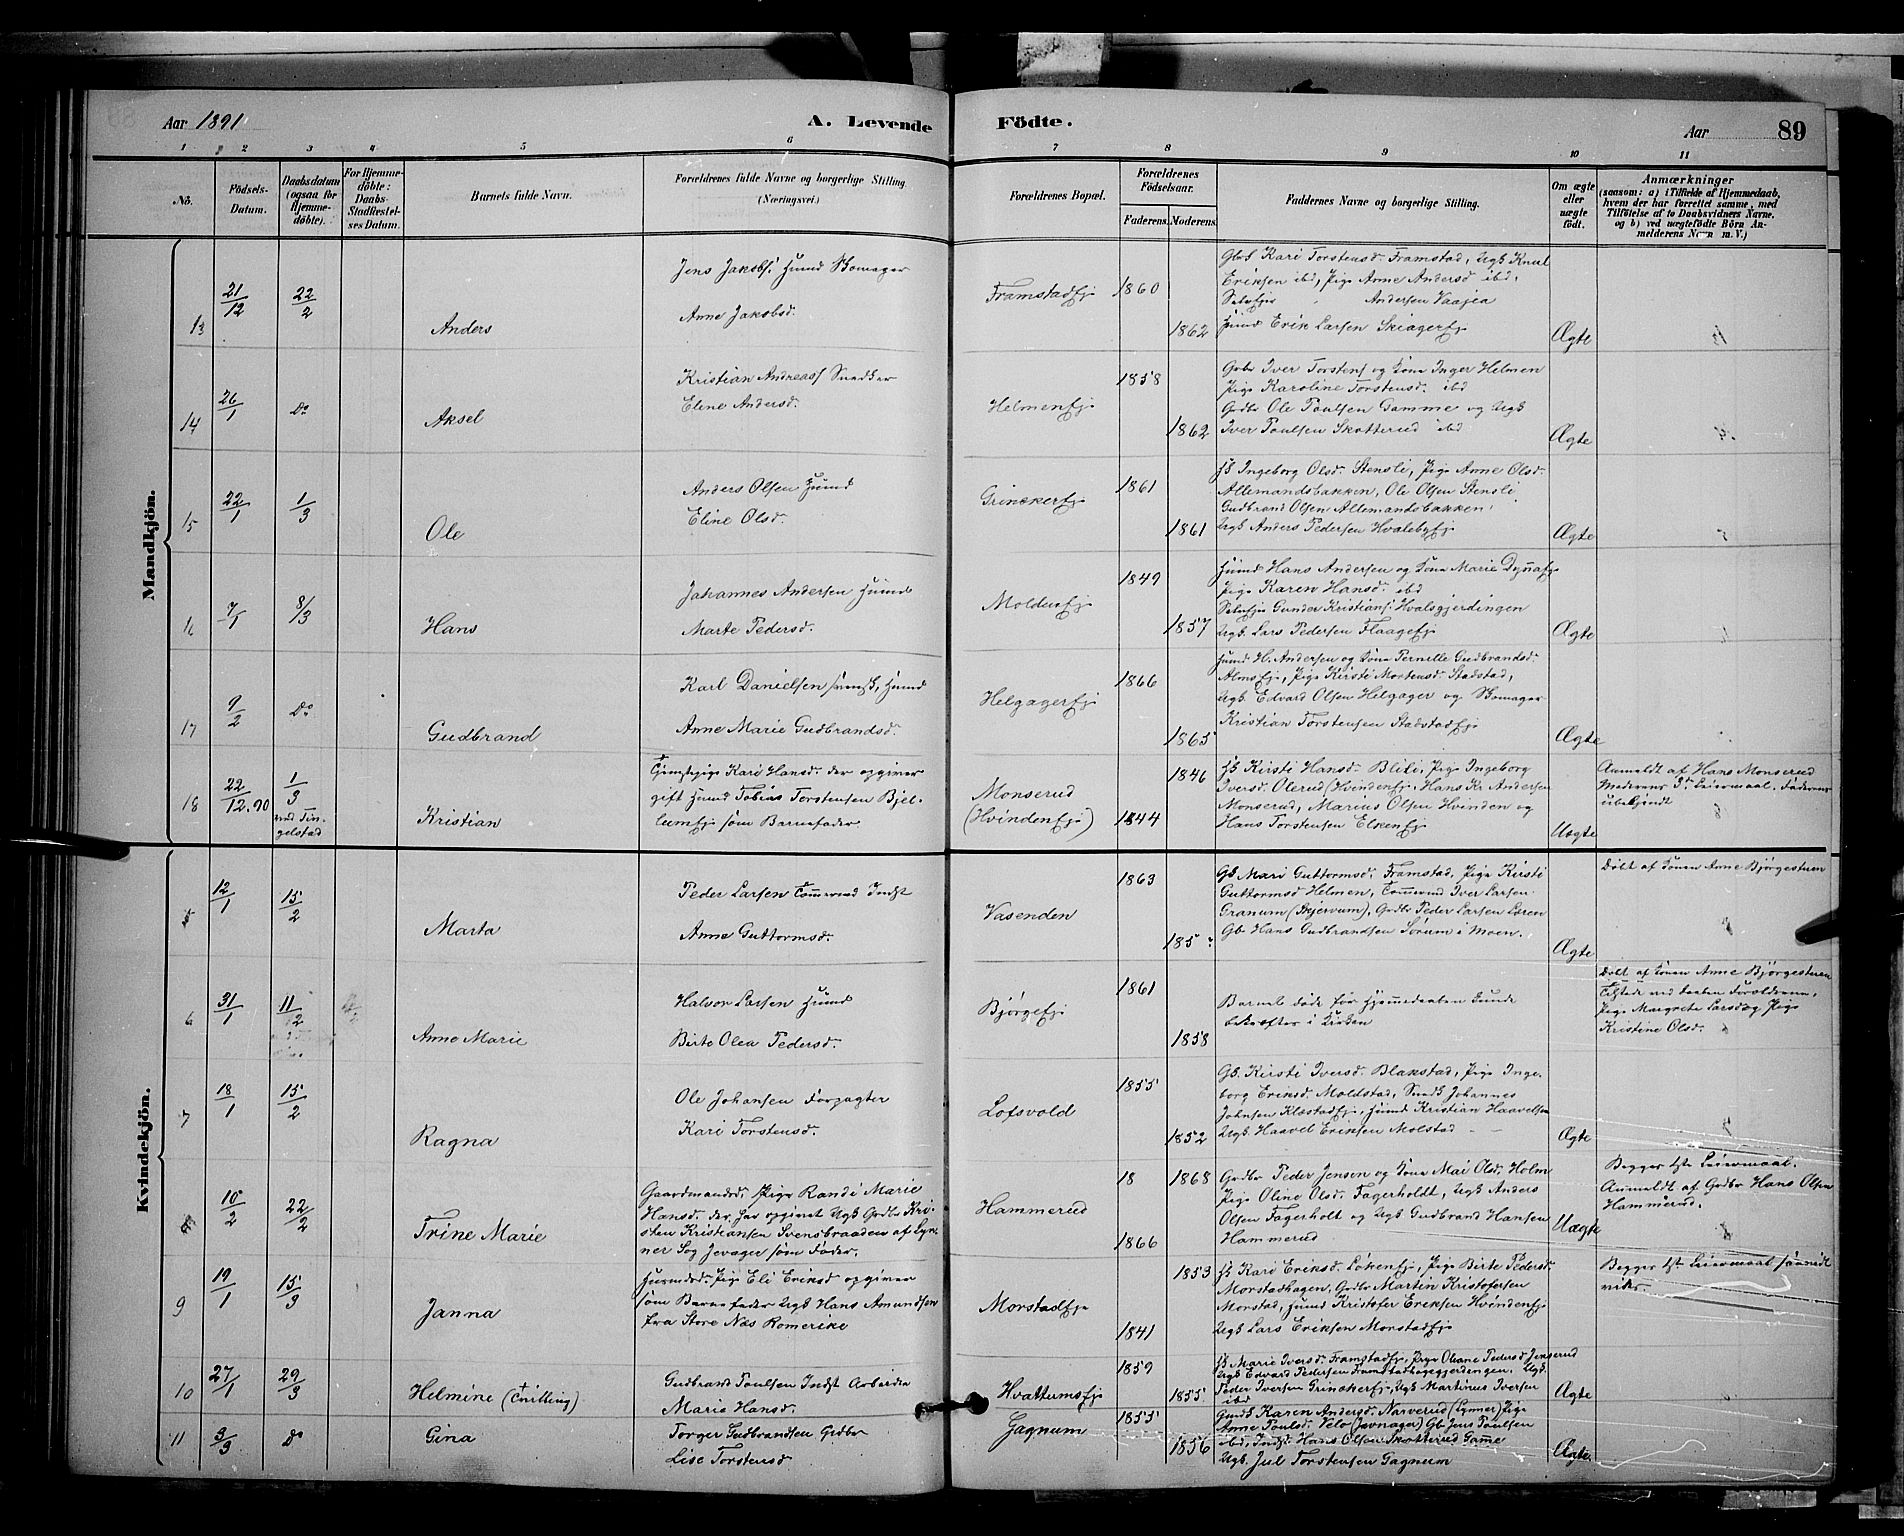 Aar 1891
A. Levende
Födte.
Aar
89
1 2 3 4 5 6 7 8 9 10 11
No.
Födsels-
Datum.
Daabsdatum
(ogsaa for
Hjemme-
döbte).
For Hjemme-
döbte:
Daabs-
Stadfæstel-
ses Datum.
Barnets fulde Navn.
Forældrenes fulde Navne og borgerlige Stilling.
(Næringsvei.)
Forældrenes Bopæl.
Forældrenes
Födselsaar.
Faderens. Moderens.
Faddernes Navne og borgerlige Stilling.
Om ægte
eller
uægte
födt.
Anmærkninger
(saasom: a) i Tilfælde af Hjemmedaab,
hvem der har forrettet samme, med
Tilföielse af to Daabsvidners Navne,
og b) ved uægtefödte Börn An-
melderens Navn m. V.)
Mandkjön.
13
21/12
22/2
Anders
Jens Jakobs. Husmd Skomager
Anne Jakobsd.
Framstadej.
1860
1862
Gbs Kari Torstensd. Framstad, Ugk Knut
Eriksen ibd, Pige Anne Andersd ibd,
Andersen Vaajea
Husmd Erik Larsen Skiagerej
Ægte
13
14
26/1
Do
Aksel
Kristian Andreass Snedker
Eline Andersd.
Helmenej.
1858
1862
Grbr Iver Torstens og Kona Inger Helmen
Pige Karoline Torstensd. ibd
Grdbr Ole Poulsen Gamme og Ugk
Iver Poulsen Skotterud ibd
Ægte
15
22/1
1/3
Ole
Anders Olsen Husmd
Eline Olsd.
Grinakerej
1861
1861
Ingeborg Olsd. Stensli, Pige Anne Olsd.
Allemandsbakken, Ole Olsen Stensli,
Gudbrand Olsen Allemandsbakken,
Ugk. Anders Pedersen Hvalebyej
Ægte
16
7/1
8/3
Hans
Johannes Andersen Husmd
Marte Pedersd.
Moldenej
1849
1857
Husmd Hans Andersen og Kona Marie Dynaej
Pige Karen Hansd. ibd
Selvejer Gunder Kristians. Hvalsgjerdingen
Ugk. Lars Pedersen Flaageej
Ægte
17
9/2
Do
Gudbrand
Karl Danielsen svensk, Husmd
Anne Marie Gudbrandsd.
Helgagerej
1866
1865
Husmd H. Andersen og Kona Pernille Gudbrandsd.
Almsej, Pige Kirsti Mortensd. Stadstad,
Ugk. Edvard Olsen Helgager og Skomager
Kristian Torstensen Stadstadej
Ægte
18
22/12.90
1/3
ved Tin-
gelstad
Kristian
Tjenstepige Kari Hansd. der opgiver
gift Husmd Tobias Torstensen Bjel-
lumej som Barnefader.
Monserud
(Hvindenej)
1844
1846
Kirsti Hansd. Blili, Pige Ingeborg
Iversd. Olerud (Hvindenej), Hans Kr. Andersen
Monserud, Marius Olsen Hvinden og
Hans Torstensen Elkenej
Uægte
Anmeldt af Hans Monserud
Moderens Leiermaal. Faderens
ubekjendt
8
Kvindekjön.
12/1
15/2
Marta
Peder Larsen Tømmermd Indst
Anne Guttormsd.
Vasenden
1863
185
Gb Mari Guttormsd. Framstad, Pige Kirsti
Guttormsd Helmen, Tømmermd Iver Larsen
Granum (Skjervum), Grdbr Peder Larsen Løren
Gb. Hans Gudbrandsen Sørum i Moen.
Ægte
Døbt af Konen Anne Bjørgesturen
6
31/1
11/12
Anne Marie
Halvor Larsen Husmd
Birte Olea Pedersd.
Bjørgeej
1861
1858
Barnet døde før Hjemmedaaben kunde
bekræftes i Kirken
Døbt af Konen Anne Bjørgesturen
Tilstede ved Daaben Forældrene,
Pige Margrete Larsd og Pige
Kristine Olsd.
7
18/1
15/2
Ragna
Ole Johansen Forpagter
Kari Torstensd.
Lofsvold
1855
1852
Gb. Kirsti Iversd. Blakstad, Pige Inge-
borg Eriksd. Moldstad, Snedk Johannes
Johnsen Klostadej, Husmd Kristian Haavelsen
Ugk. Haavel Eriksen Molstad
Ægte
10/2
22/2
Trine Marie
Gaardmandsd. Pige Randi Marie
Hansd. der har opgivet Ugk Grdbr Kri-
sten Kristiansen Svensbraaden af Lyn-
ner Sog Jevnager som Fader.
Hammerud
18
1866
1868
Grdbr Peder Jensen og Kona Mai Olsd. Holm
Pige Oline Olsd. Fagerholdt, Ugk Anders
Olsen Fagerholt og Ugk Gudbrand Hansen
Hammerud
Uægte
Begges 1ste Leiermaal.
Anmeldt af Grdbr Hans Olsen
Hammerud.
9
19/1
15/3
Janna
Husmdsd. Pige Eli Eriksd opgiver
som Barnefader Ugk Hans Amundsen
fra Store Næs Romerike
Morstadeje
1841
1853
Kari Eriksd. Løkenej, Pige Birte Pedersd.
Morstadhagen, Grdbr Martin Kristofersen
Morstad, Husmd Kristofer Eriksen Hvindenej
Ugk Lars Eriksen Morstadej
Begges 1st Leiermaal
10
27/1
29/3
Helmine (Tvilling)
Gudbrand Poulsen Indst Arbeider
Marie Hansd.
Hvattumsej
1859
1855
Marie Iversd. Framstadej, Pige Oliane Pedersd Jenserud
Ugk Edvard Pedersen Framstadhagegjerdingen, Ugk.
Peder Iversen Grinakerej, Ugk Martinus Iversen
ibd
Ægte
11
3/3
Do
Gina
Torger Gudbrandsen Grdbr
Lise Torstensd
Gagnum
1855
1856
Gmdk Karen Andersd. Narverud (Lynner) Pige
Anne Poulsd. Velo (Jevnager) Gb. Jens Poulsen
ibd, Indst. Hans Olsen Skotterud Gamme
Ugk. Jul Torstensen Gagnum
Ægte.